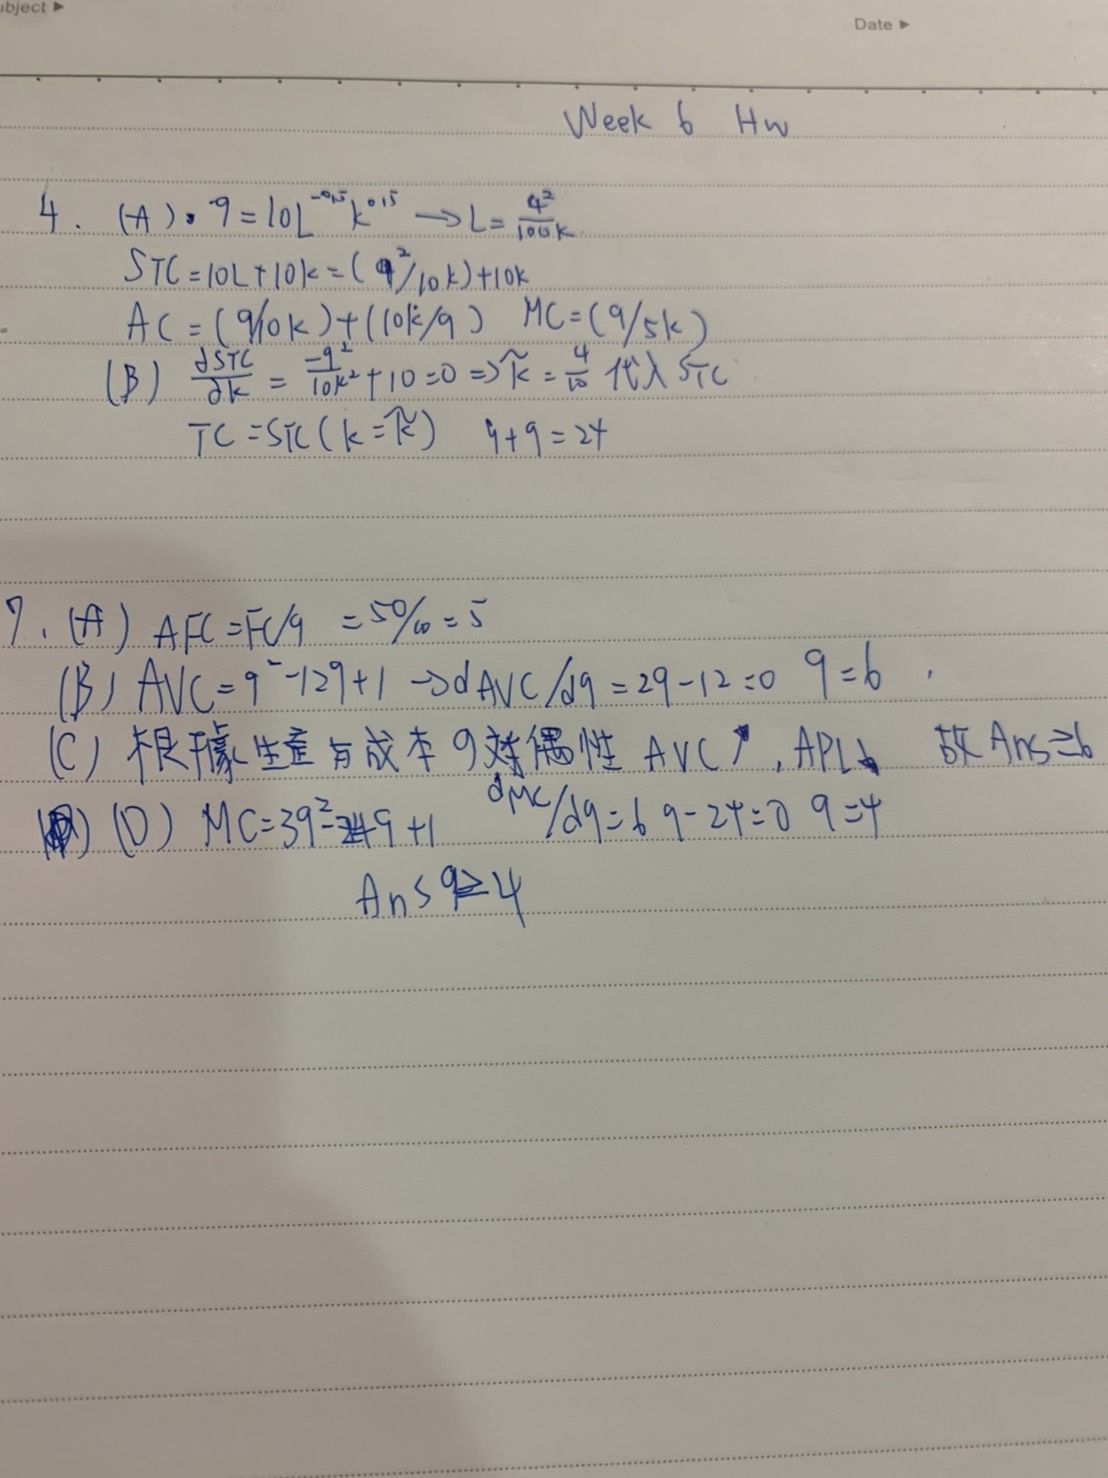 ubject ▶
Date ▶
Week 6 Hw
4. (A). q=10L^-0.5 k^0.5 → L= q²/100k
STC=10L+10k=(q²/10k)+10k
AC=(q/10k)+(10k/q) MC=(q/5k)
(B) ∂STC/∂k = -q²/10k² +10=0 ⇒ k̃ = q/10 代入STC
TC=STC(k=k̃) q+q=2q
7. (A) AFC=FC/q =50/10=5
(B) AVC=q²-12q+1 → dAVC/dq=2q-12=0 q=6
(C) 根據生產与成本の対偶性 AVC↗, APL↘ 故Ans≥6
(D) MC=3q²-24q+1 dMC/dq=6q-24=0 q=4
Ans q≥4